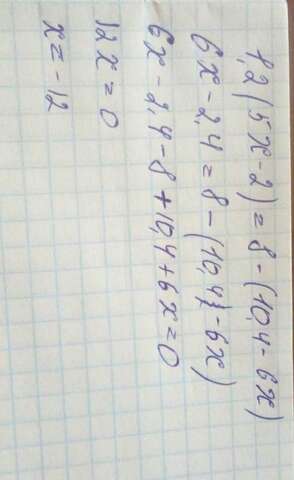 1,2(5x-2)=8-(10,4-6x)
6x-2,4=8-(10,4-6x)
6x-2,4-8+10,4+6x=0
12x=0
x=-12